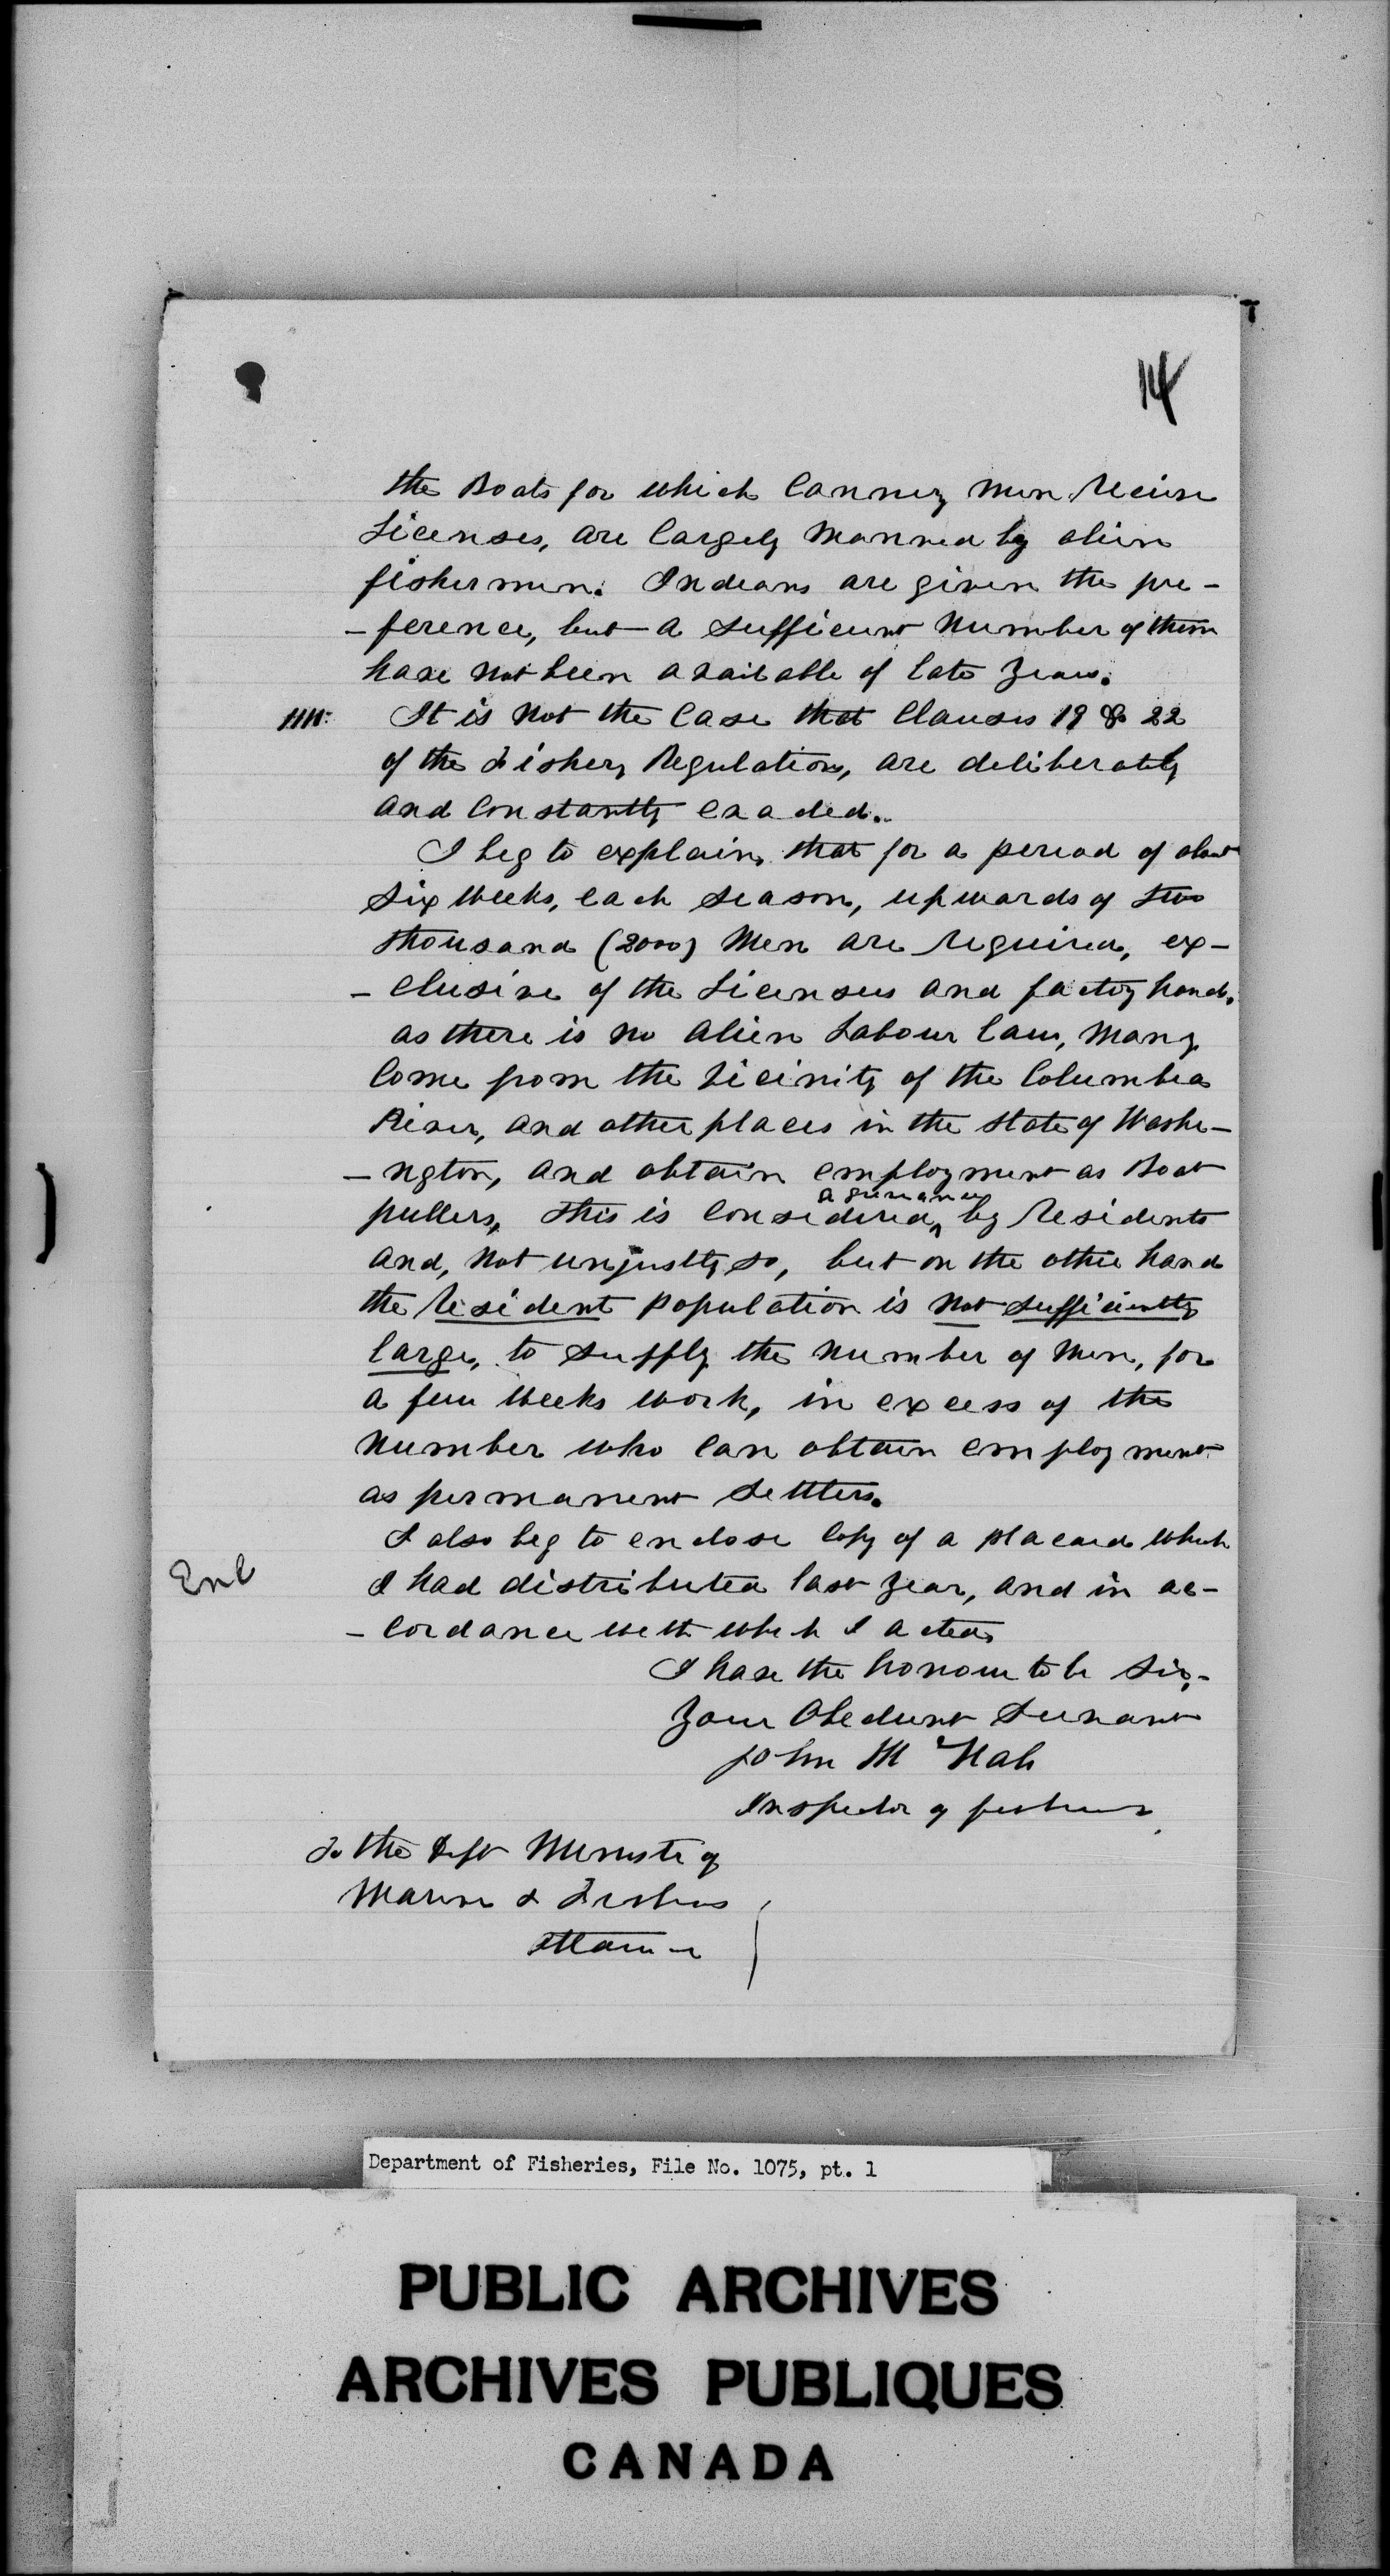 14
the Boats for which Cannery men receive
Licenses, are largely manned by alien
fishermen. Indians are given the pre-
-ference, but a sufficient number of them
have not been available of late years.
IIII: It is not the case that Clauses 19 & 22
of the Fishery Regulations, are deliberately
and constantly evaded.
I beg to explain, that for a period of about
six weeks, each season, upwards of two
thousand (2000) men are required, ex-
-clusive of the Licensees and factory hands.
as there is no alien Labour law, many
come from the vicinity of the Columbia
River, and other places in the State of Washi-
-ngton, and obtain employment as Boat
pullers, this is considered a grievance by residents
and, not unjustly so, but on the other hand
the resident population is not sufficiently
large, to supply the number of men, for
a few weeks work, in excess of the
number who can obtain employment
as permanent settlers.
I also beg to enclose copy of a placard which
Enc I had distributed last year, and in ac-
-cordance with which I acted
I have the honour to be Sir,-
Your Obedient Servant
John McNab
Inspector of fisheries
To the Dept Minister of
Marine & Fisheries
Ottawa
Department of Fisheries, File No. 1075, pt. 1
PUBLIC ARCHIVES
ARCHIVES PUBLIQUES
CANADA